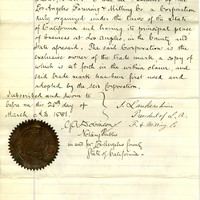 Los Angeles Farming & Milling Co. a Corporation
duly organized under the laws of the State
of California and having its principal place
of business at Los Angeles, in the County and
State aforesaid. The said Corporation is the
exclusive owner of the trade mark, a copy of
which is set forth in the within claim, and
said trade mark has been first used and
adopted by the said Corporation.
Subscribed and sworn to
before me this 26th day of
March A.D. 1881.
Notary Public
in and for Los Angeles County
State of California.
President of L. A.
F. & Milling Co